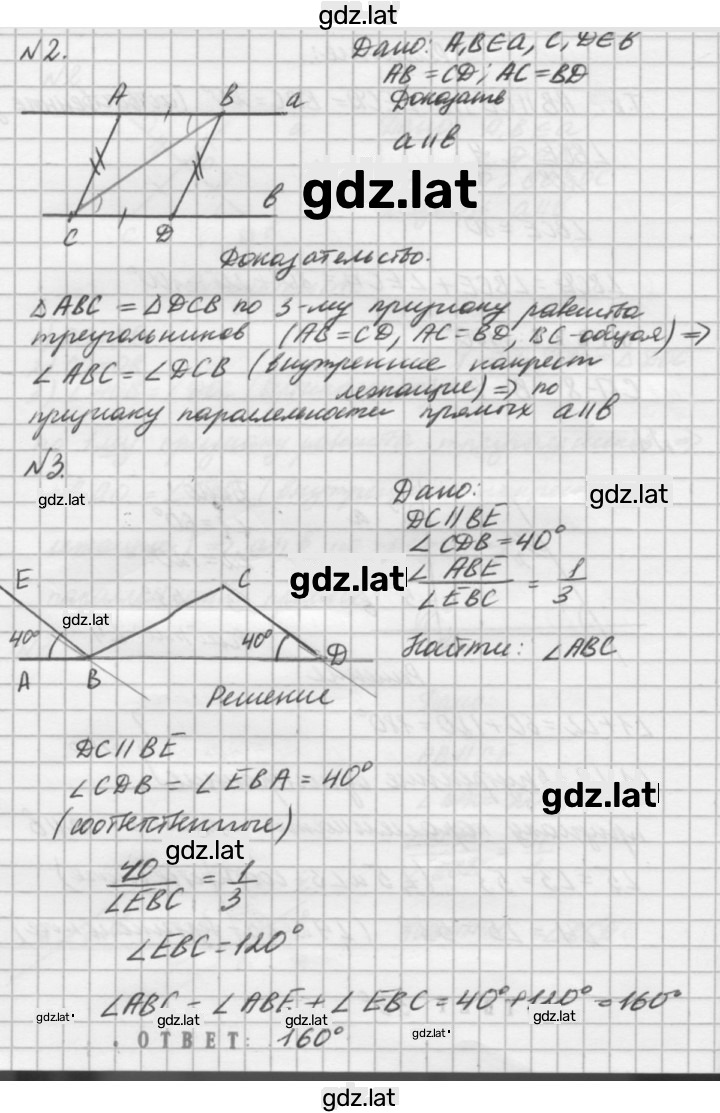 gdz.lat
N2.
Дано: A,B∈a, C,D∈b
AB = CD; AC = BD
Доказать
a∥b
A B a
gdz.lat
C D b
Доказательство.
△ABC = △DCB по 3-му признаку равенства
треугольников (AB=CD, AC=BD, BC-общая) ⇒
∠ABC = ∠DCB (внутренние накрест
лежащие) ⇒ по
признаку параллельности прямых a∥b
N3.
gdz.lat
Дано:
gdz.lat
DC∥BE
∠CDB = 40°
∠ABE / ∠EBC = 1/3
gdz.lat
Найти: ∠ABC
E C
gdz.lat
40° 40°
A B D
Решение
DC∥BE
∠CDB = ∠EBA = 40°
gdz.lat
(соответственные)
gdz.lat
40 / ∠EBC = 1/3
∠EBC = 120°
∠ABC = ∠ABE + ∠EBC = 40° + 120° = 160°
gdz.lat
gdz.lat
gdz.lat
gdz.lat
gdz.lat
ОТВЕТ: 160°
gdz.lat